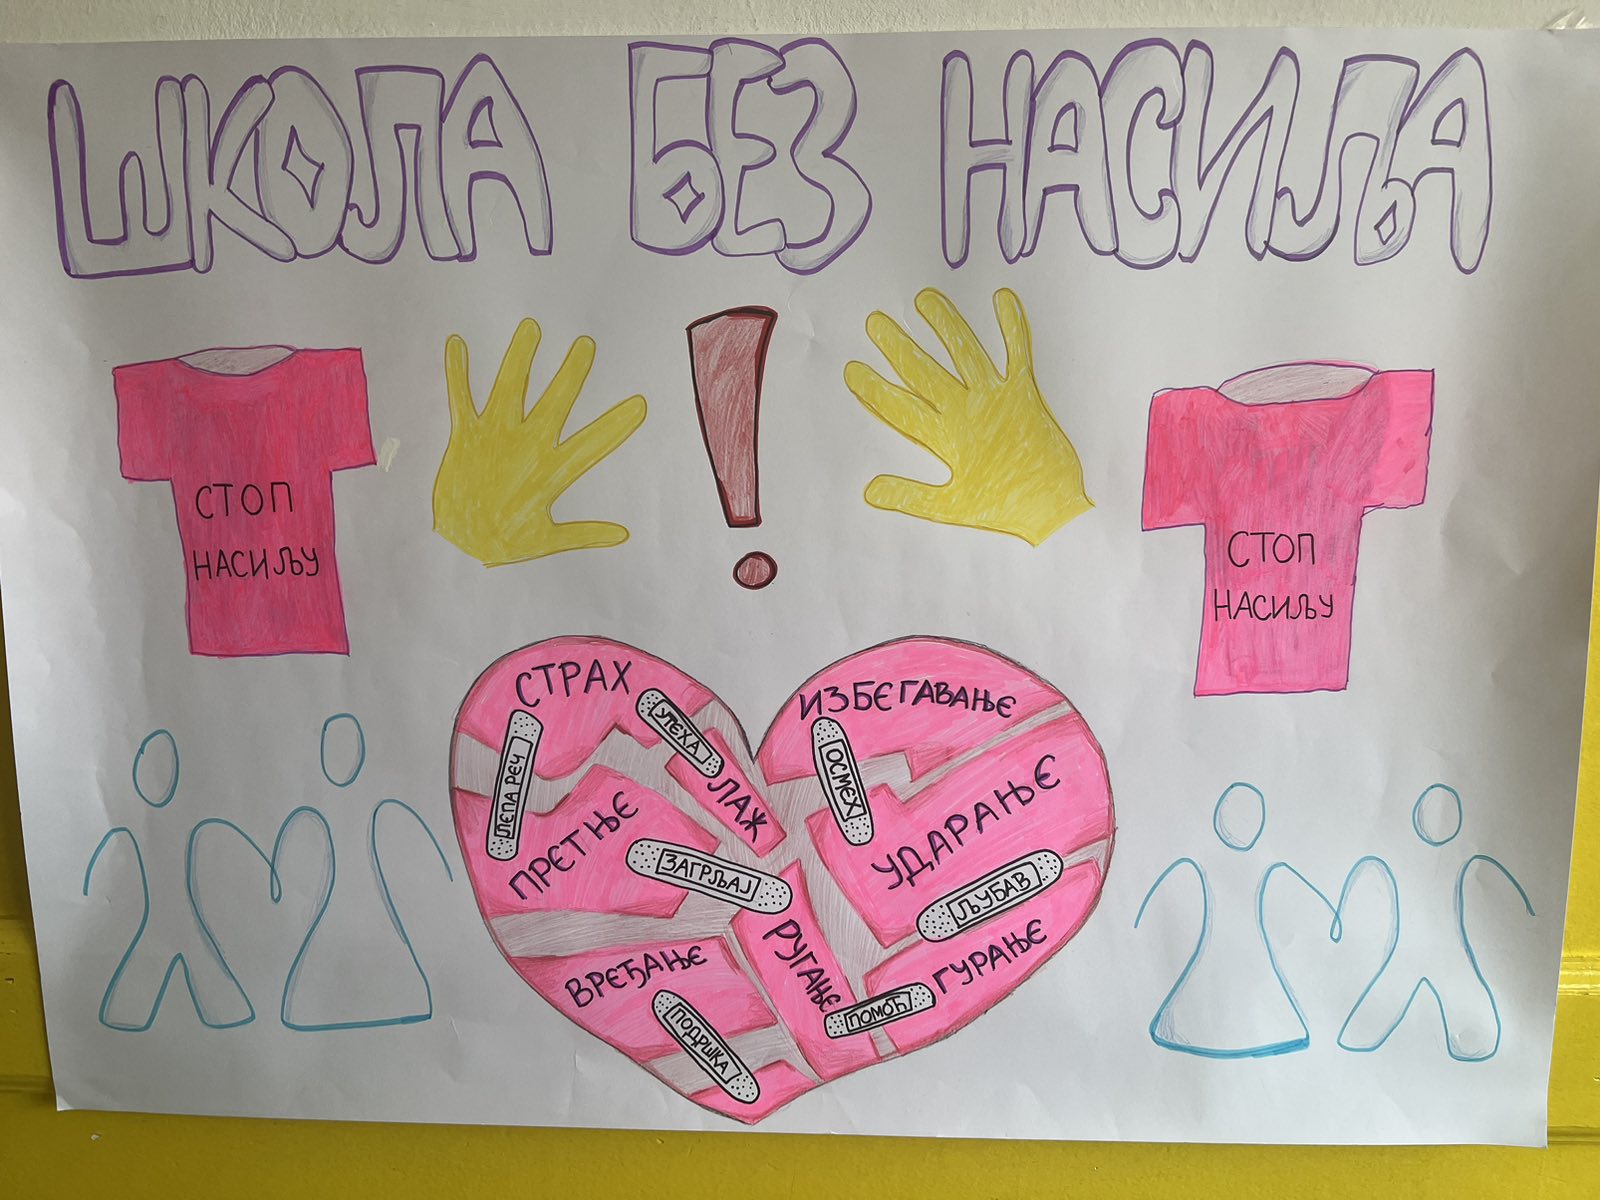 ШКОЛА БЕЗ НАСИЉА
СТОП
НАСИЉУ
СТОП
НАСИЉУ
СТРАХ
УТЕХА
ЛЕПА РЕЧ
ЛАЖ
ПРЕТЊЕ
ЗАГРЉАЈ
ИЗБЕГАВАЊЕ
ОСМЕХ
УДАРАЊЕ
ЉУБАВ
ГУРАЊЕ
РУГАЊЕ
ПОМОЋ
ВРЕЂАЊЕ
ПОДРШКА